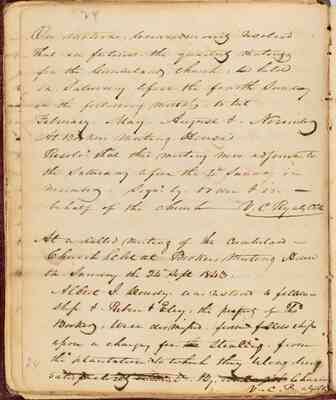 24
On motion unanimously resolved
that in future the quarterly meetings
for the Cumberland Church be held
on Saturday before the fourth Sunday
in the following months, to wit
February, May, August & November
At Bookers Meeting House
Resolvd that this meeting now adjourn to
the Saturday before the Sunday in
by order & in
behalf of the Church V. C. Ryals, Clk
At a called Meeting of the Cumberland
Church held at Bookers Meeting House
the Sunday the 24 Sept 1843
Albert J. was restored to fellow
ship & Peter & the property of Tho
Booker, were dismissed from fellowship
upon a charge for Stealing, from
the plantation to which they belong
By Church
V. C. Ryals